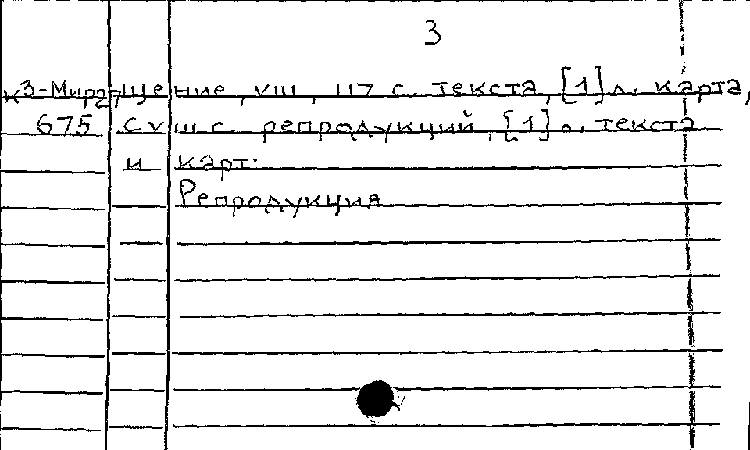 3
к3-Миращение, VIII, 117 с. текста, [1] л. карта,
675 CVIII с. репродукций, [1] л. текста
и карт.
Репродукция